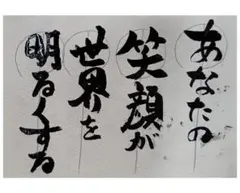 あなたの
笑顔が
世界を
明るくする